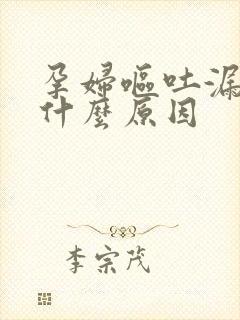 孕婦嘔吐漏
什麼原因
李宗茂